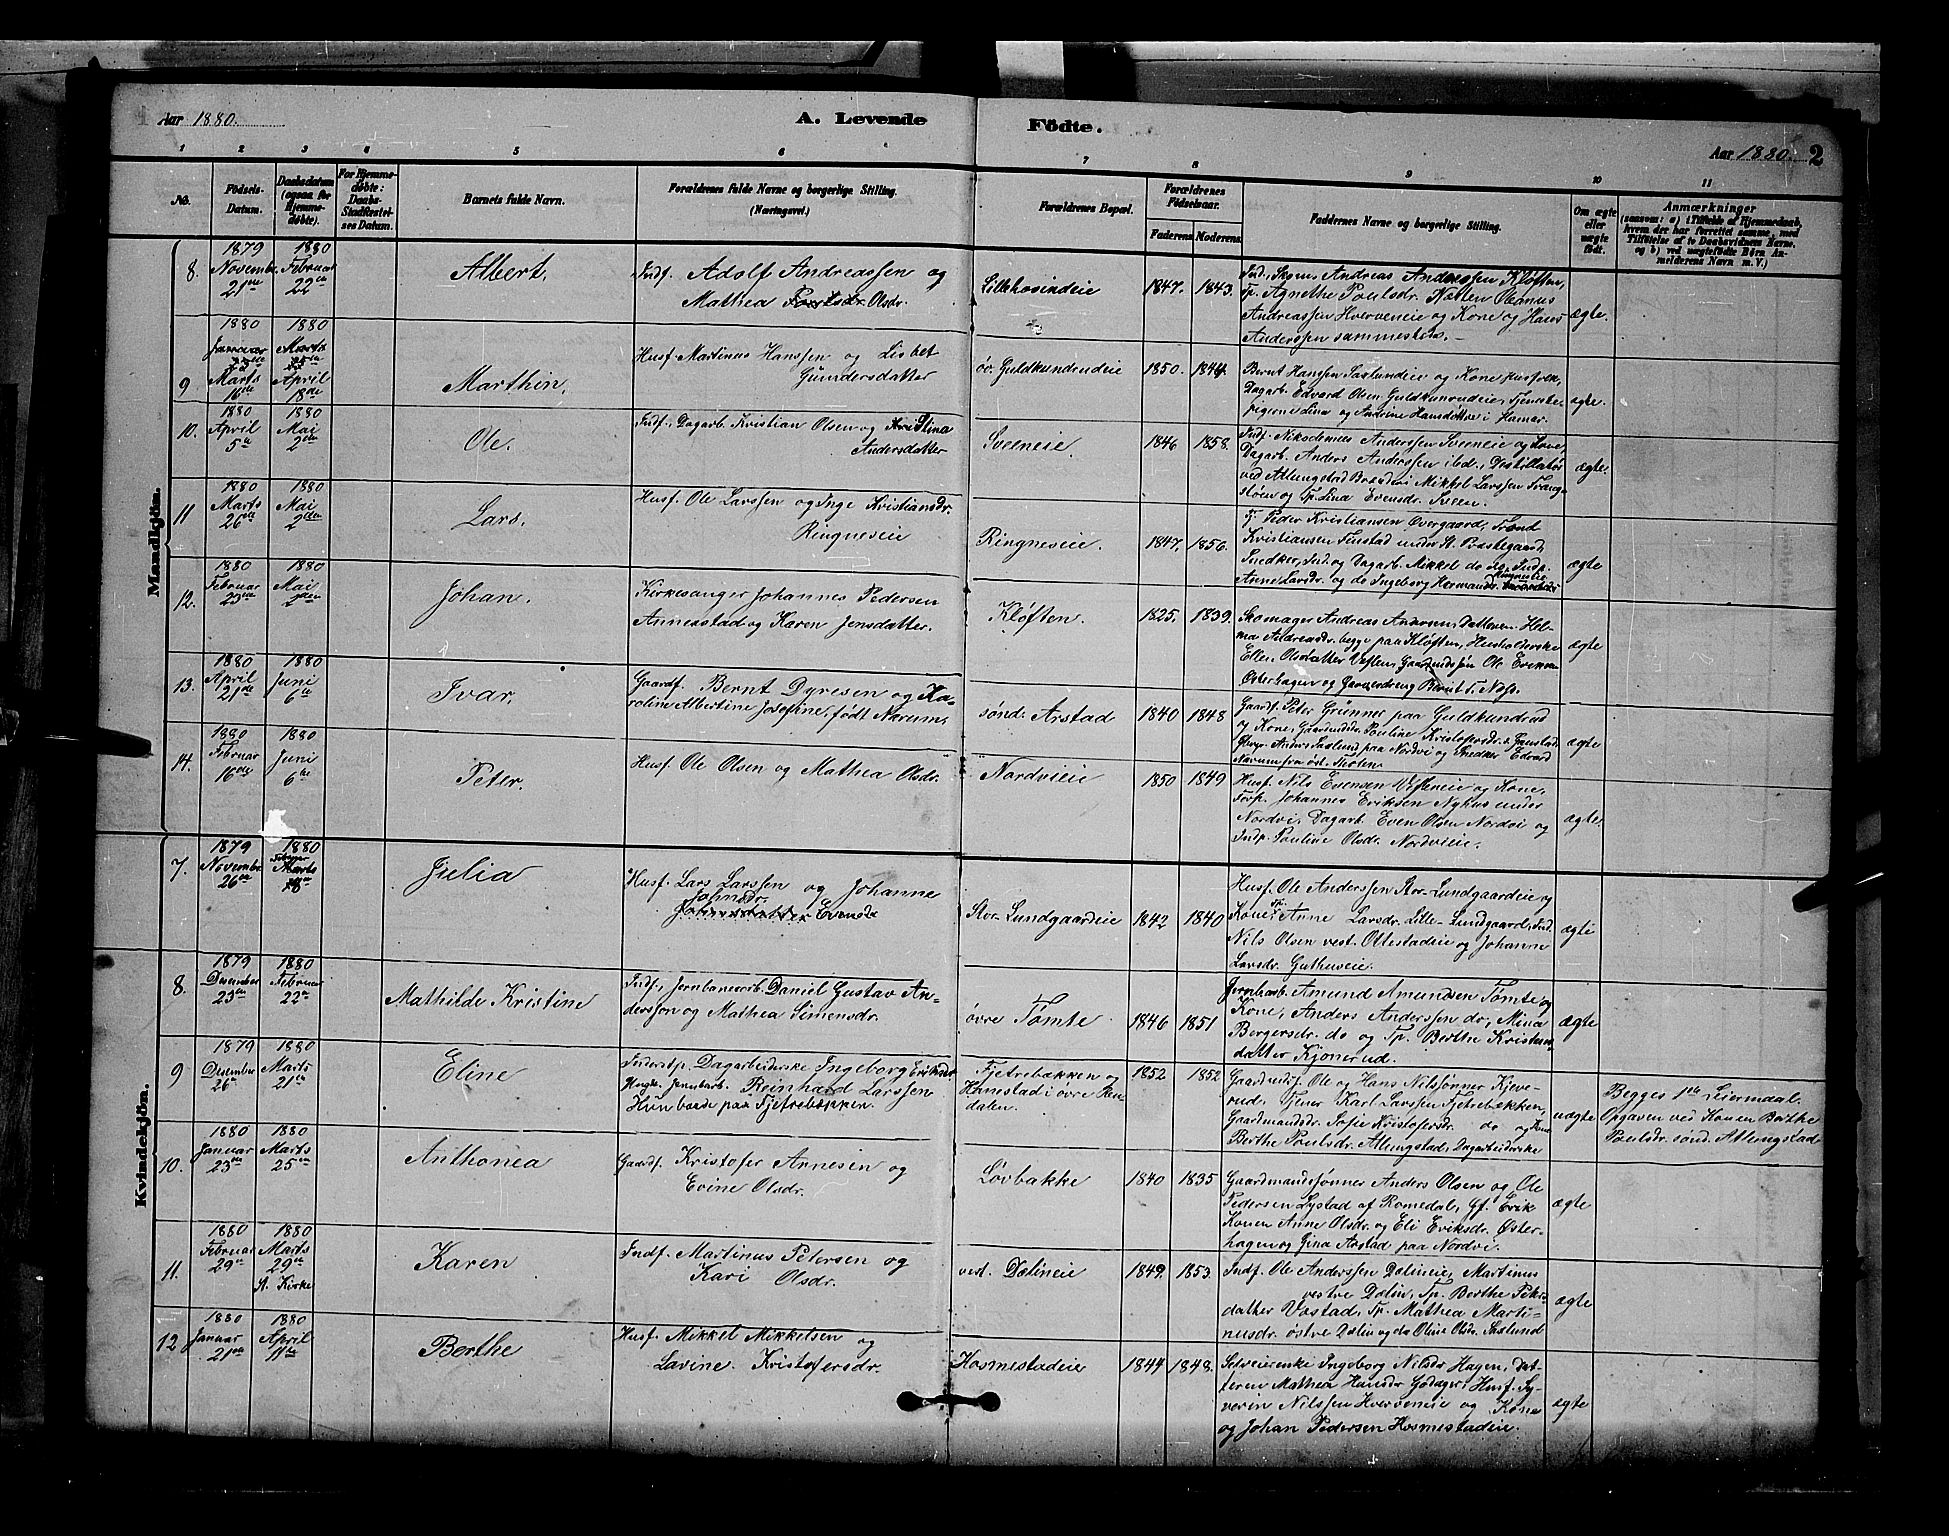 Aar 1880.
A. Levende
Födte.
Aar 1880.
2
1
2
3
4
5
6
7
8
9
10
11
No.
Födsels-Datum.
Daabsdatum (ogsaa for Hjemmedöbte).
For Hjemmedöbte: Daabs-Stadfæstelses Datum.
Barnets fulde Navn.
Forældrenes fulde Navne og borgerlige Stilling.
(Næringsvei.)
Forældrenes Bopæl.
Forældrenes Födselsaar.
Faderens
Moderens
Faddernes Navne og borgerlige Stilling.
Om ægte eller uægte födt.
Anmærkninger
(saasom: a) i Tilfælde af Hjemmedaab, hvem der har forrettet samme, med Tilföielse af to Daabsvidners Navne, og b) ved uægtefödte Börn Anmelderens Navn m. V.)
Mandkjön.
8.
1879 Novembr. 21de
1880 Februar 22de
Albert.
Indf. Adolf Andreassen og
Mathea Olsdr.
Lillehosindeie
1847.
1843.
Ind., Skom. Andreas Anderssen Kløften,
Tp. Agnethe Poulsdr. Nætten Oleanus
Andreassen Hverveneie og Kone og Hans
Anderssen sammesteds.
ægte.
9
1880 Marts 16de
1880 April 18de
Marthin.
Husf. Martinus Hanssen og Lisbet
Gundersdatter
öv. Guldkundrudeie
1850.
1844.
Bernt Hanssen Saslundeie og Kone Husfolk,
Dagarb. Edvard Olsen Guldkunrudeie, Tjeneste-
pigerne Lina og Andrine Hansdøttre i Hamar.
ægte.
10.
1880 April 5te
1880 Mai 2den
Ole.
Indf., Dagarb. Kristian Olsen og Kristina
Andersdatter
Sveeneie.
1846
1858.
Indf. Nikodemus Anderssen Sveeneie og Kone,
Dagarb. Anders Anderssen ibd., Destillatør
ved Atlungstad Brænderi Mikkel Larssen Trang-
støen og Tp. Lina Evensdr. Sveen.
ægte
11
1880 Marts 26de
1880 Mai 2den
Lars.
Husf. Ole Larssen og Inge Kristiansdr.
Ringneseie
Ringneseie.
1847.
1856.
Tj. Peder Kristiansen Overgaard, Trond
Kristiansen Finstad under St. Præstegaard,
Snedker, Ind. og Dagarb. Mikkel
Anne Larsdr. og do Ingeborg Hermandsdr. Ringneseie
ægte
12.
1880 Februar 23de
1880 Mai 2den
Johan.
Kirkesanger Johannes Pedersen
Annexstad og Karen Jensdatter.
Kløften.
1825.
1839.
Skomager Andreas Andersen, Datteren Hel-
ma Andreasdr. begge paa Kløften, Husholderske
Ellen Olsdatter Veflen, Gaardmdssøn Ole Evensen
Østerhagen og Gaardreng Bernt
ægte
13.
1880 April 21de
1880 Juni 6te
Ivar.
Gaardf. Bernt Dyresen og Ka-
roline Albertine Josefine, født Narum.
sønd. Arstad
1840
1848
Gaardf. Peter Grünner paa Guldkundrud
og Kone, Gaardmdsdr. Pauline Kristofersdr.
Anders Saslund paa Nordvi og Snedker Edvard
Narum fra øst. Thoten.
ægte
14.
1880 Februar 16de
1880 Juni 6te
Peter.
Husf. Ole Olsen og Mathea Olsdr.
Nordvieie
1850
1849
Husf. Nils Evensen Vefleneie og Kone,
Forp. Johannes Eriksen Nykus under
Nordvi, Dagarb. Even Olsen Nordvi og
Indp. Pauline Olsdr. Nordvieie.
ægte.
Kvindekjön.
7.
1879 Novembr. 26de
1880 Februar
Julia
Husf. Lars Larssen og Johanne
Johnsdr.
Stor. Lundgaardeie
1842
1840
Husf. Ole Anderssen Stor-Lundgaardeie og
Kone, Tp. Anne Larsdr. Lille-Lundgaard, Ind.
Nils Olsen vest. Ottestadeie og Johanne
Larsdr. Guthuseie.
ægte
8.
1879 Desember 23de
1880 Februar 22de
Mathilde Kristine
Indf., Jernbanearb. Daniel Gustav An-
dersson og Mathea Simensdr.
øvre Tømte
1846
1851
Jernbarb. Amund Amundsen Tømte og
Kone, Anders Anderssen do, Mina
Bergersdr. do og Tp. Berthe Kristens-
datter Kjonerud.
ægte
9
1879 Desember 26de
1880 Marts 21de
Eline
Inderstp., Dagarbeiderske Ingeborg Eriksdr
Ungk. Jernbarb. Reinhard Larssen
Hun boede paa Fjetrebækken.
Fjetrebækken og
Hanestad i øvre Ren-
dalen.
1852
1852
Gaardmdss. Ole og Hans Nilssønner Kjeve-
rud, Tjener Karl Larssen Fjetrebækken,
Gaardmandsdr. Sofie Kristofersdr. do og Kone
Berthe Poulsdr. Atlungstad, Dagarbeiderske
uægte
Begges 1ste Leiermaal.
Opgaven ved Konen Berthe
Poulsdr. sønd. Atlungstad
10.
1880 Januar 23de
1880 Marts 25de
Anthonea
Gaardf. Kristofer Arnesen og
Evine Olsdr.
Løvbakke
1840
1835
Gaardmandssønner Anders Olsen og Ole
Pedersen Lystad af Romedal, Gf. Erik
Konen Anne Olsdr. og Eli Eriksdr. Øster-
hagen og Gina Arstad paa Nordvi.
ægte
11.
1880 Februar 29de
1880 Marts 29de St. Kirke
Karen
Indf. Martinus Petersen og
Kari Olsdr.
vest. Dælineie
1849.
1853.
Indf. Ole Anderssen Dælineie, Martinus
vestre Dælin, Tp. Berthe Peders-
datter Vastad, Tp. Mathea Marti-
nusdr. østre Dælin og do Oline Olsdr. Saslund
ægte
12
1880 Januar 21de
1880 April 11te
Berthe
Husf. Mikkel Mikkelsen og
Lavine Kristofersdr.
Hosmestadeie
1844
1848.
Selveierenke Ingeborg Nilsdr Hagen, Dat-
teren Mathea Hansdr Godager, Husf. Sy-
verin Nilssen Hverveneie og Kone
og Johan Pedersen Hosmestadeie.
ægte